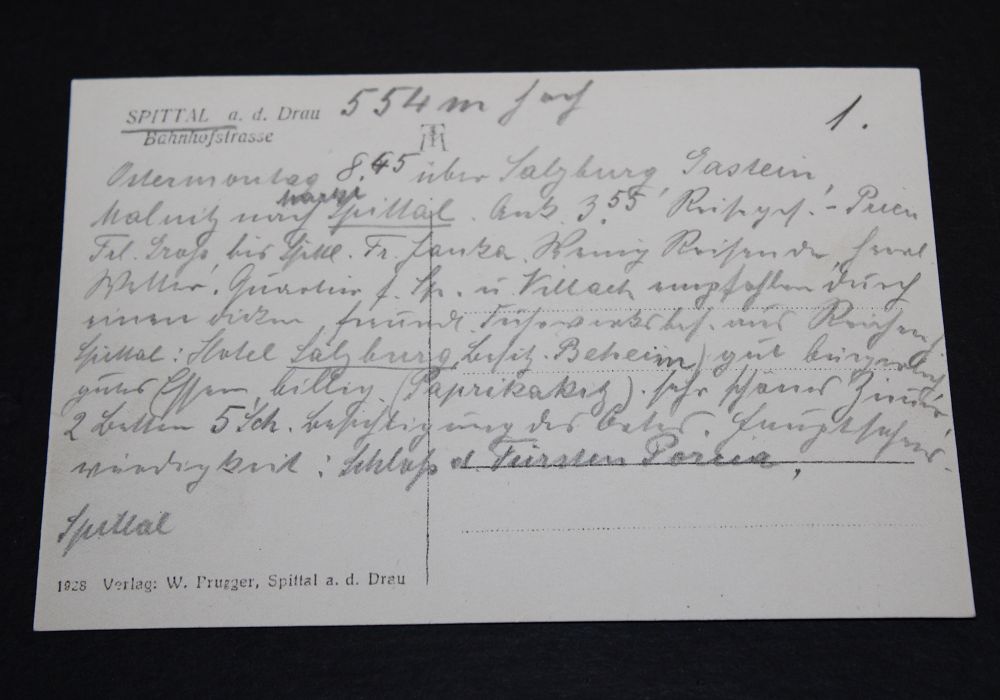 SPITTAL a. d. Drau 554 m hoch
Bahnhofstrasse
1.
Ostermontag 8.45 über Salzburg Gastein,
Malnitz nach Spittal. Ank. 3.55 Reisegef. - Prien
Frl. Groß bis Spittl. Fr. Janka. Wenig Reisende, herrl.
Wetter. Quartier f. Sp. u. Villach empfohlen durch
einen dicken freundl. Fuhrwerksbes. aus
Spittal: Hotel Salzburg, Besitz. Beheim) gut bürgerlich
gutes Essen, billig (Paprikakitz). sehr schönes Zimmer
2 Betten 5 Sch. Besichtigung des Ortes. Hauptsehens-
würdigkeit: Schloß d. Fürsten Porcia,
Spittal
1928 Verlag: W. Prugger, Spittal a. d. Drau